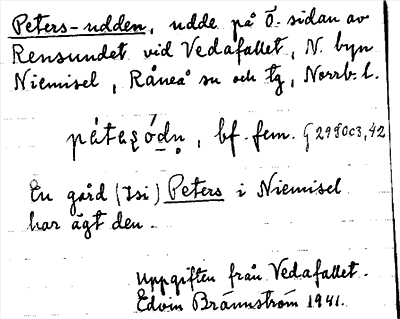 Peters-udden, udde på Ö.-sidan av
Rensundet vid Vedafallet, N. byn
Niemisel, Råneå sn och tg, Norrb. l.
bf. fem. G2980c3,42
En gård (Isi) Peters i Niemisel
har ägt den.
Uppgiften från Vedafallet.
Edvin Brännström 1941.